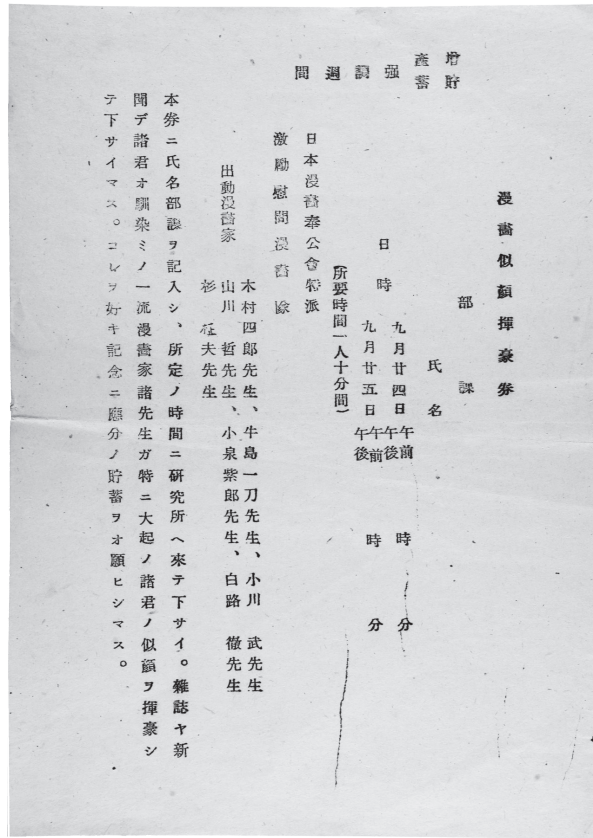 漫畵似顏揮毫券
部課
氏名
日時 九月廿四日 午前 午後 時 分
九月廿五日 午前 午後 時 分
(所要時間一人十分間)
增產 貯蓄 强調週間
日本漫畵奉公會特派
激勵慰問漫畵隊
出動漫畵家
木村四郎先生、牛島一刀先生、小川 武先生
山川 哲先生、小泉紫郎先生、白路 徹先生
杉 征夫先生
本券ニ氏名部課ヲ記入シ、所定ノ時間ニ研究所ヘ來テ下サイ。雜誌ヤ新
聞デ諸君オ馴染ミノ一流漫畵家諸先生ガ特ニ大起ノ諸君ノ似顏ヲ揮豪シ
テ下サイマス。コレヲ好キ記念ニ應分ノ貯蓄ヲオ願ヒシマス。